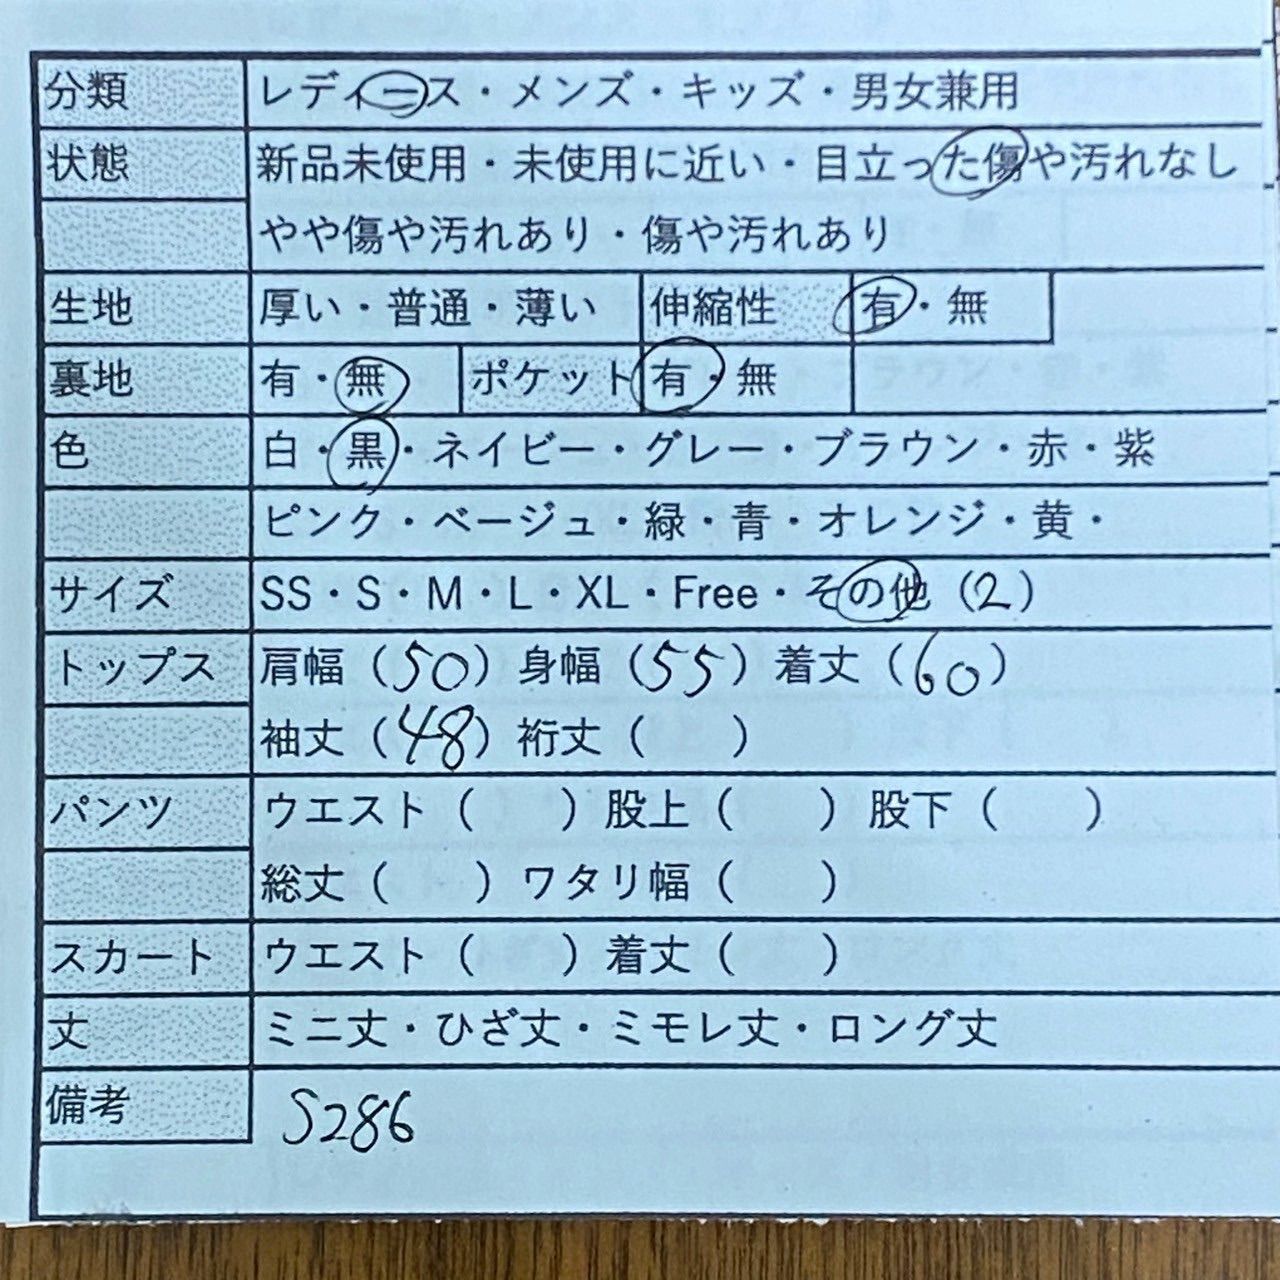 分類 レディース・メンズ・キッズ・男女兼用
状態 新品未使用・未使用に近い・目立った傷や汚れなし
やや傷や汚れあり・傷や汚れあり
生地 厚い・普通・薄い 伸縮性 有・無
裏地 有・無 ポケット 有・無
色 白・黒・ネイビー・グレー・ブラウン・赤・紫
ピンク・ベージュ・緑・青・オレンジ・黄・
サイズ SS・S・M・L・XL・Free・その他（2）
トップス 肩幅（50）身幅（55）着丈（60）
袖丈（48）裄丈（　）
パンツ ウエスト（　）股上（　）股下（　）
総丈（　）ワタリ幅（　）
スカート ウエスト（　）着丈（　）
丈 ミニ丈・ひざ丈・ミモレ丈・ロング丈
備考 S286